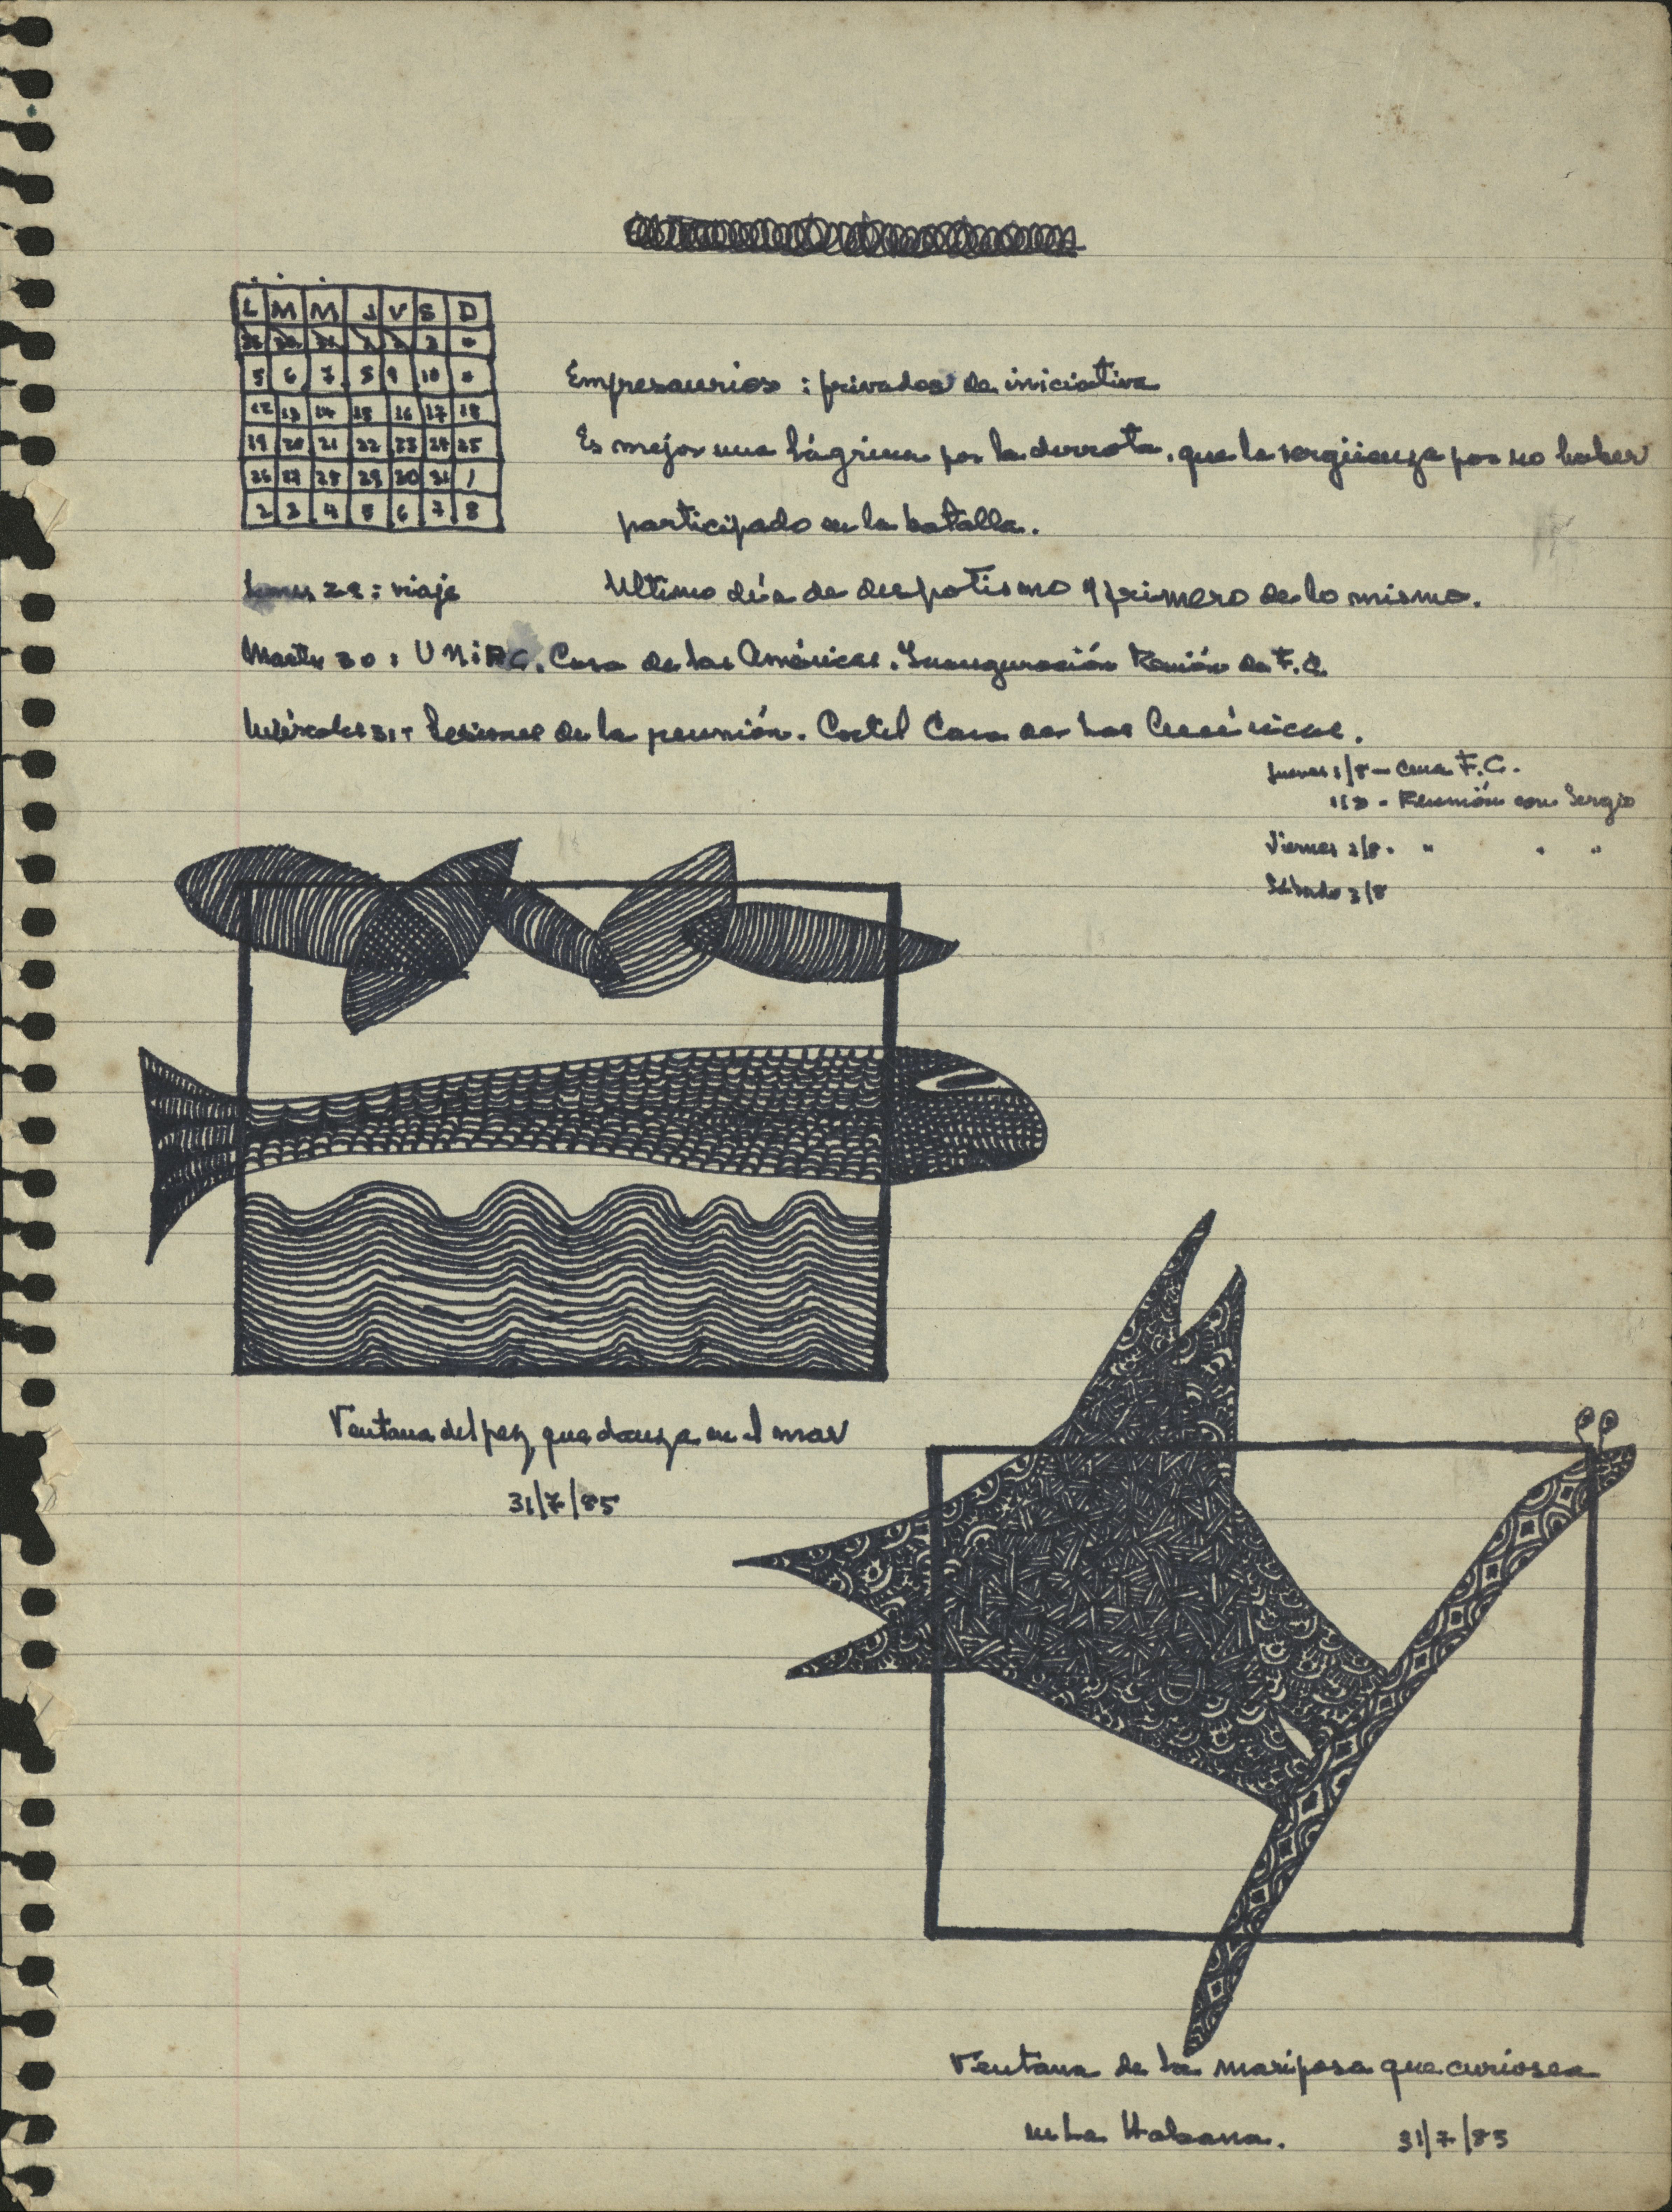 L M M J V S D
29 30 31 1 2 3 *
5 6 7 8 9 10 *
12 13 14 15 16 17 18
19 20 21 22 23 24 25
26 27 28 29 30 31 1
2 3 4 5 6 7 8
Empresaurios : privados de iniciativa
Es mejor una lágrima por la derrota, que la vergüenza por no haber
participado en la batalla.
Lunes 29 : viaje
Ultimo día de despotismo y primero de lo mismo.
Martes 30 : Casa de las Américas. Inauguración Reunión de F.C.
Miércoles 31 - Sesiones de la reunión. Coctel Casa de las Américas.
Jueves 1/8 - Cena F.C.
- Reunión con Sergio
Viernes 2/8 - " " "
Sábado 3/8
Ventana del pez que danza en el mar
31/7/85
Ventana de la mariposa que curiosea
en La Habana. 31/7/85